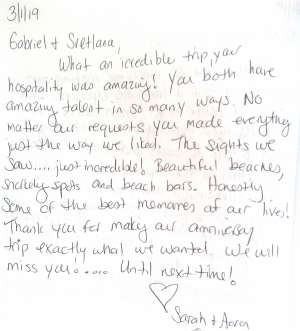 3/1/19
Gabriel + Svetlana,
What an icredible trip, your
hospitality was amazing! You both have
amazing talent in so many ways. No
matter our requests you made everything
just the way we liked. The sights we
saw.... just incredible! Beautiful beaches,
snorkely spots and beach bars. Honestly
some of the best memories of our lives!
Thank you for making our anniversary
trip exactly what we wanted. We will
miss you!..... Until next time!
Sarah + Aaron